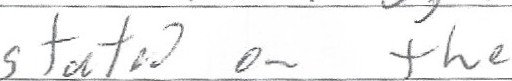 stated on the